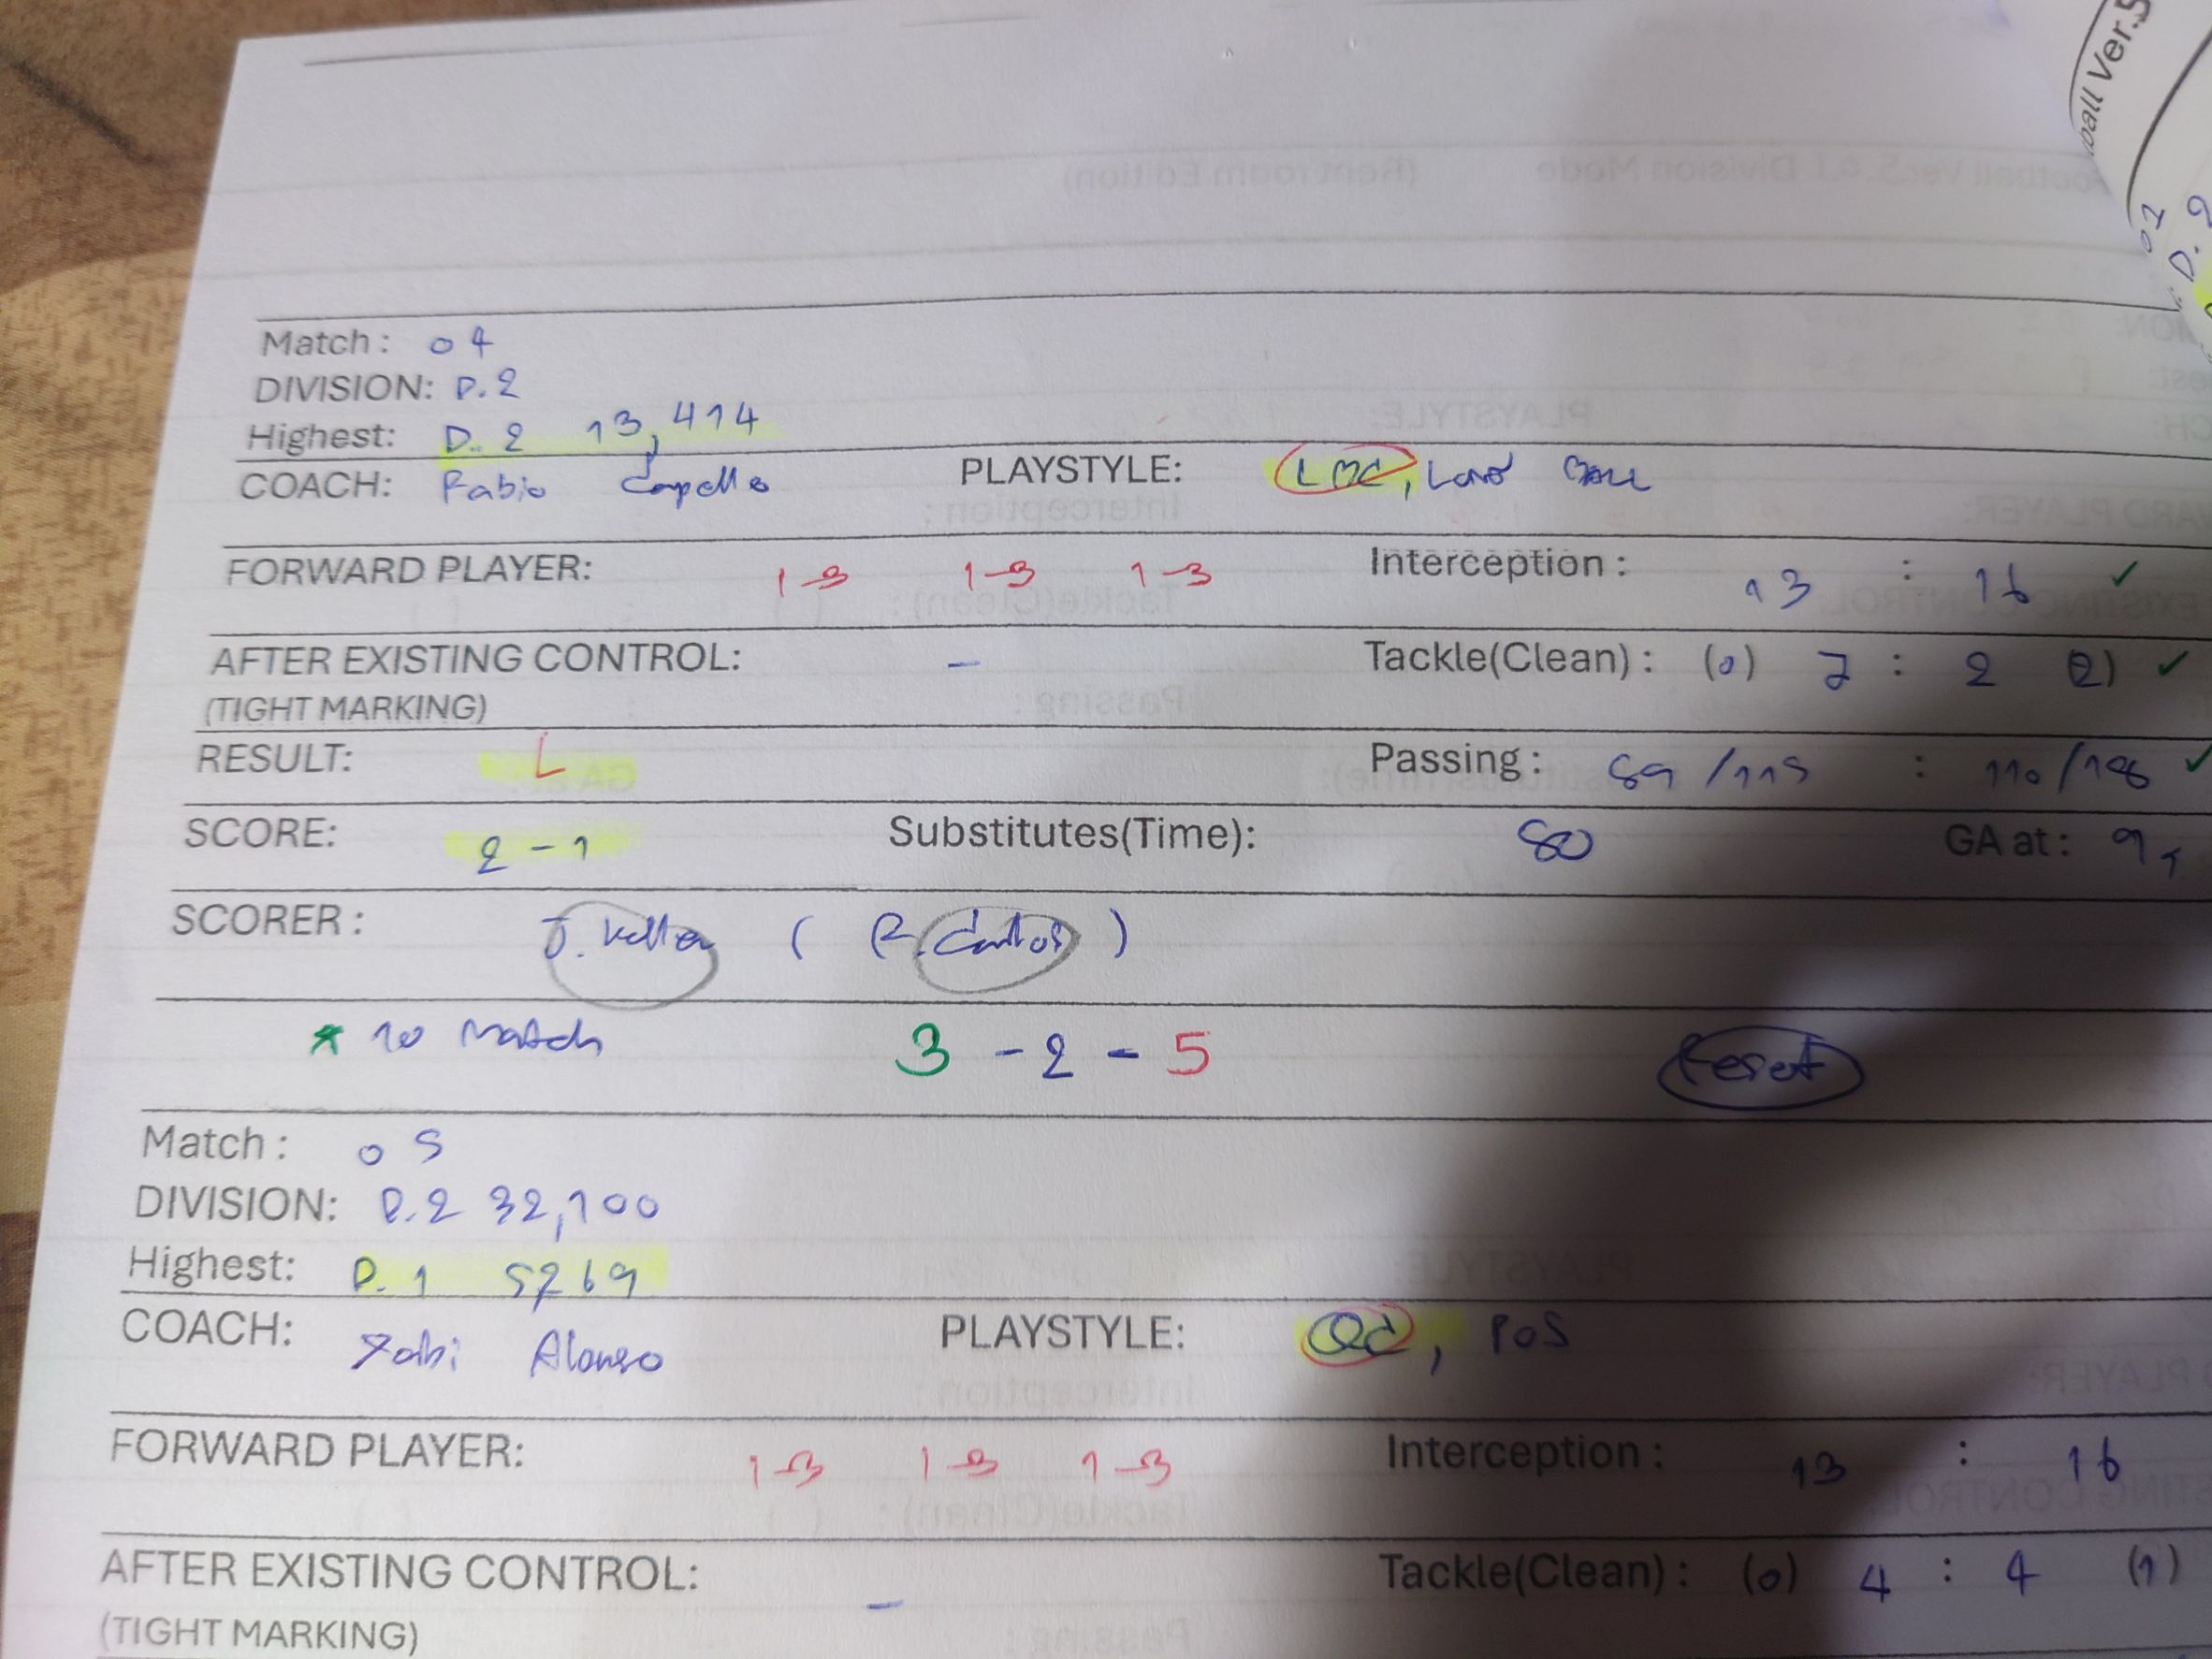 ball Ver.5
Match : 04
DIVISION: D.2
Highest: D.2 13,414
COACH: Fabio Capello PLAYSTYLE: LBC, Long Ball
FORWARD PLAYER: 1-3 1-3 1-3 Interception : 13 : 16 ✓
AFTER EXISTING CONTROL: – Tackle(Clean) : (0) 7 : 2 (2) ✓
(TIGHT MARKING)
RESULT: L Passing : 89/115 : 110/ ✓
SCORE: 2-1 Substitutes(Time): 80 GA at :
SCORER : J. (R. Carlos)
* 10 Match 3 - 2 - 5 Reset
Match : 05
DIVISION: D.2 32,100
Highest: D.1 5769
COACH: Xabi Alonso PLAYSTYLE: QC, POS
FORWARD PLAYER: 1-3 1-3 1-3 Interception : 13 : 16
AFTER EXISTING CONTROL: – Tackle(Clean) : (0) 4 : 4 (1)
(TIGHT MARKING)